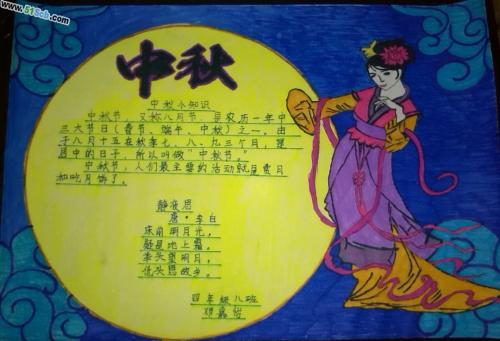 www.51Scb.com
中秋
中秋小知识
中秋节,又称八月节,是农历一年中
三大节日(春节、端午、中秋)之一,由
于八月十五在秋季七、八、九三个月,是
居中的日子,所以叫做“中秋节”。
中秋节,人们最主要的活动就是赏月
和吃月饼了。
静夜思
唐·李白
床前明月光,
疑是地上霜。
举头望明月,
低头思故乡。
四年级八班
邓嘉怡